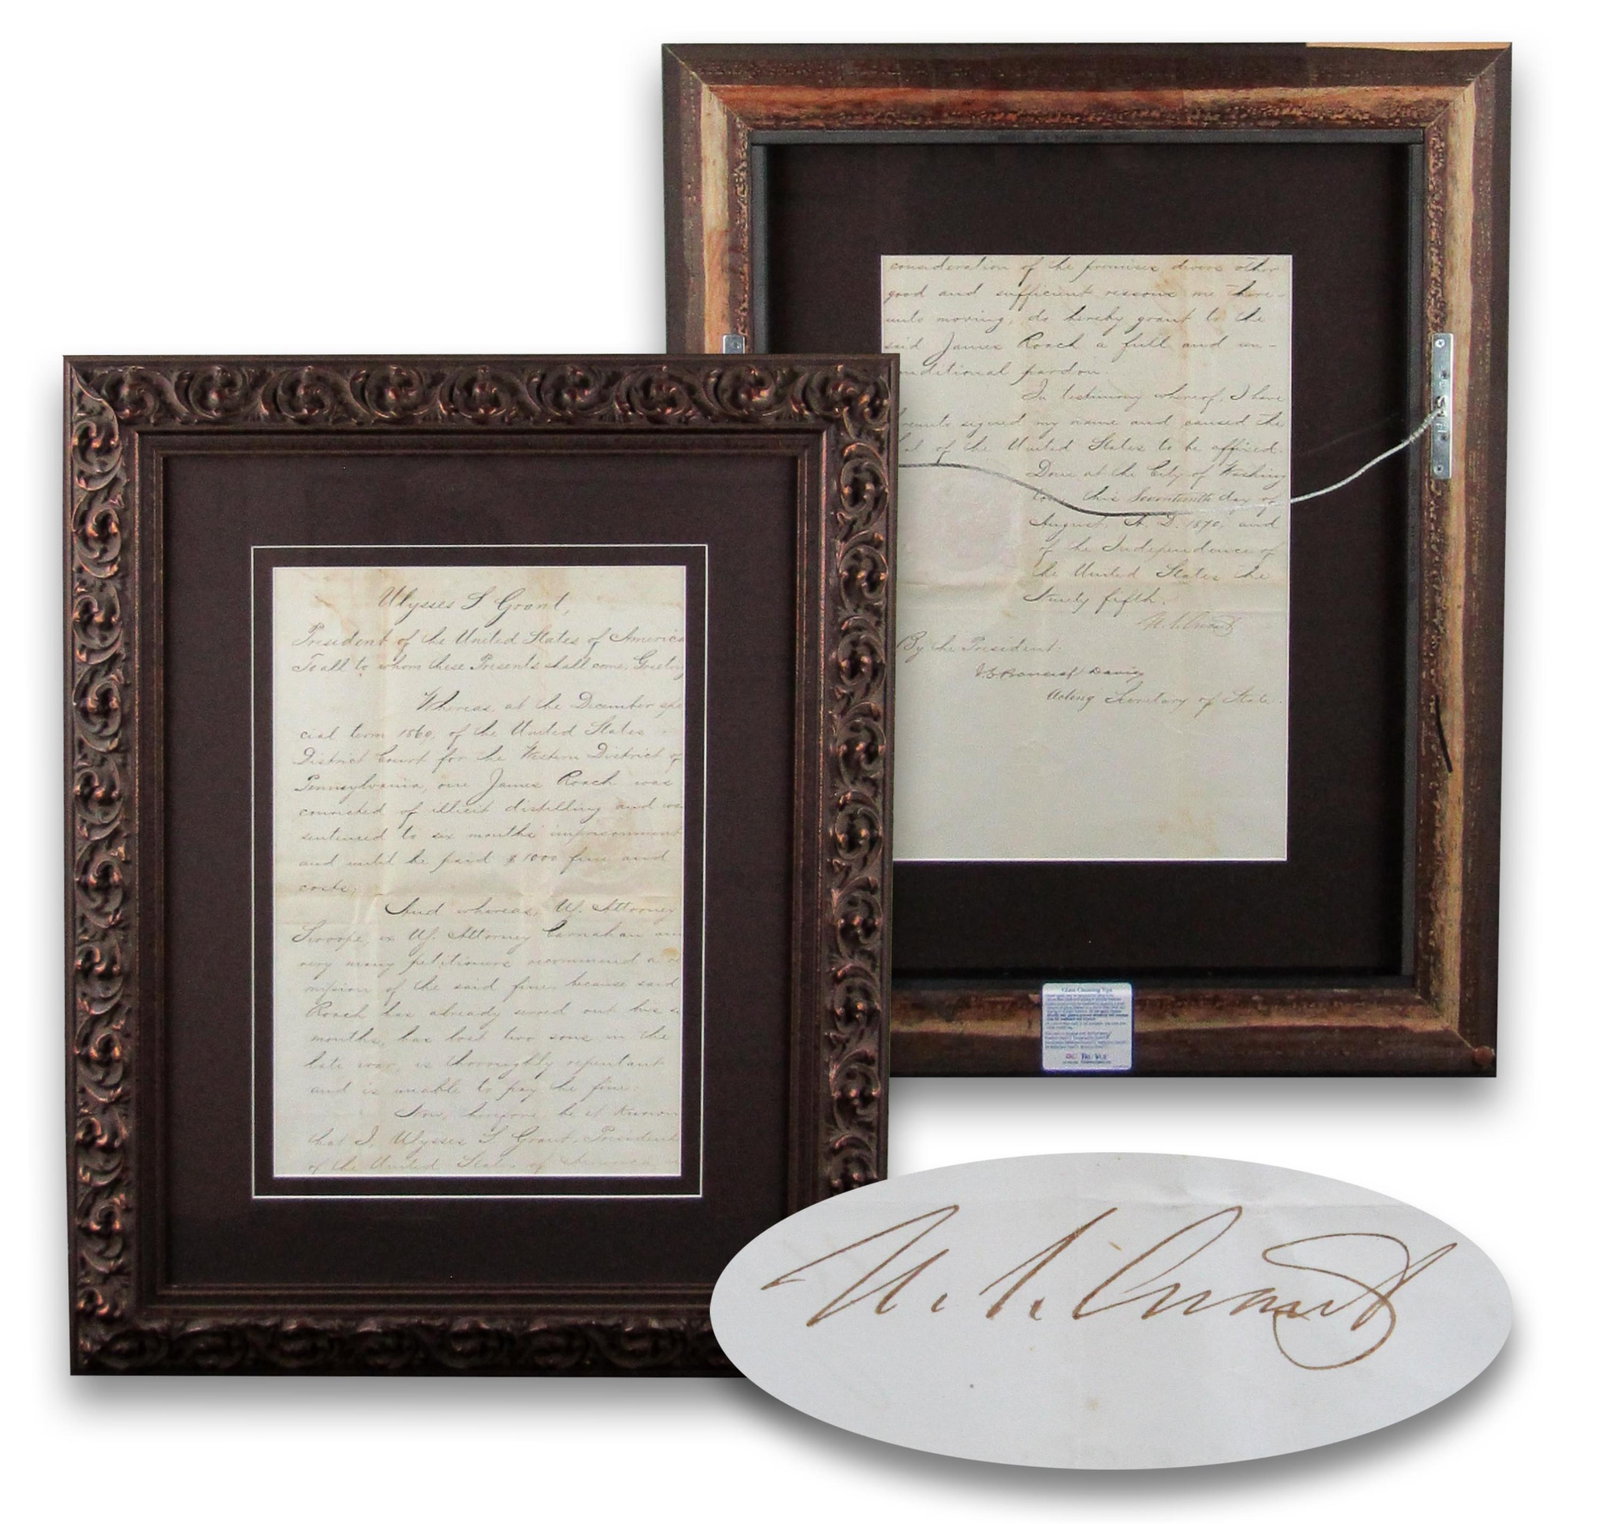 Ulysses S Grant,
President of the United States of America
To all to whom these Presents shall come, Greeting
Whereas, at the December spe
cial term 1869, of the United States
District Court for the Western District of
Pennsylvania, one James Roach was
convicted of illicit distilling and wa
sentenced to six months' imprisonment
and until he paid $1000 fine and
costs;
And whereas, U.S. Attorney
Swoope, ex U.S. Attorney Carnahan an
very many petitioners recommend a
mission of the said fine, because said
Roach has already served out his s
months, has lost two sons in the
late war, is thoroughly repentant
and is unable to pay the fine:
Now, therefore, be it Known
that I, Ulysses S Grant, President
of the United States of America
consideration of the premises, divers other
good and sufficient reasons me there-
unto moving, do hereby grant to the
said James Roach a full and un-
conditional pardon.
In testimony whereof, I have
hereunto signed my name and caused the
Seal of the United States to be affixed.
Done at the City of Washing
ton this Seventeenth day of
August, A.D. 1870, and
of the Independence of
the United States the
Ninety fifth.
U. S. Grant
By the President:
J. C. Bancroft Davis
Acting Secretary of State.
Glass Cleaning Tips
Tru Vue
U. S. Grant